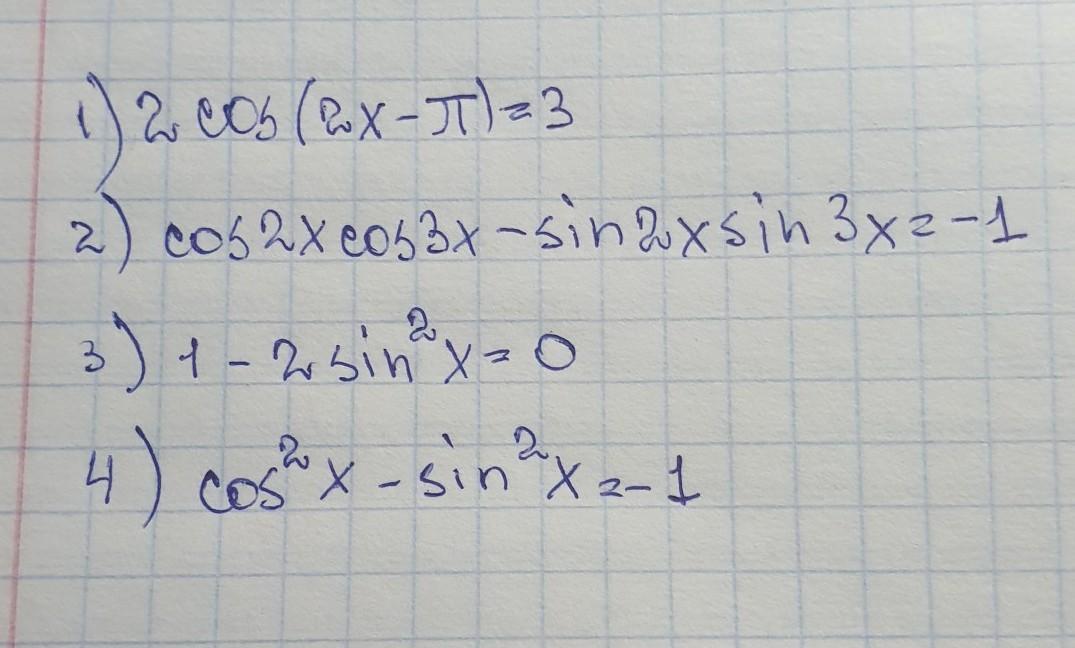 1) 2 cos(2x-π)=3
2) cos2xcos3x-sin2xsin3x=-1
3) 1-2sin²x=0
4) cos²x-sin²x=-1